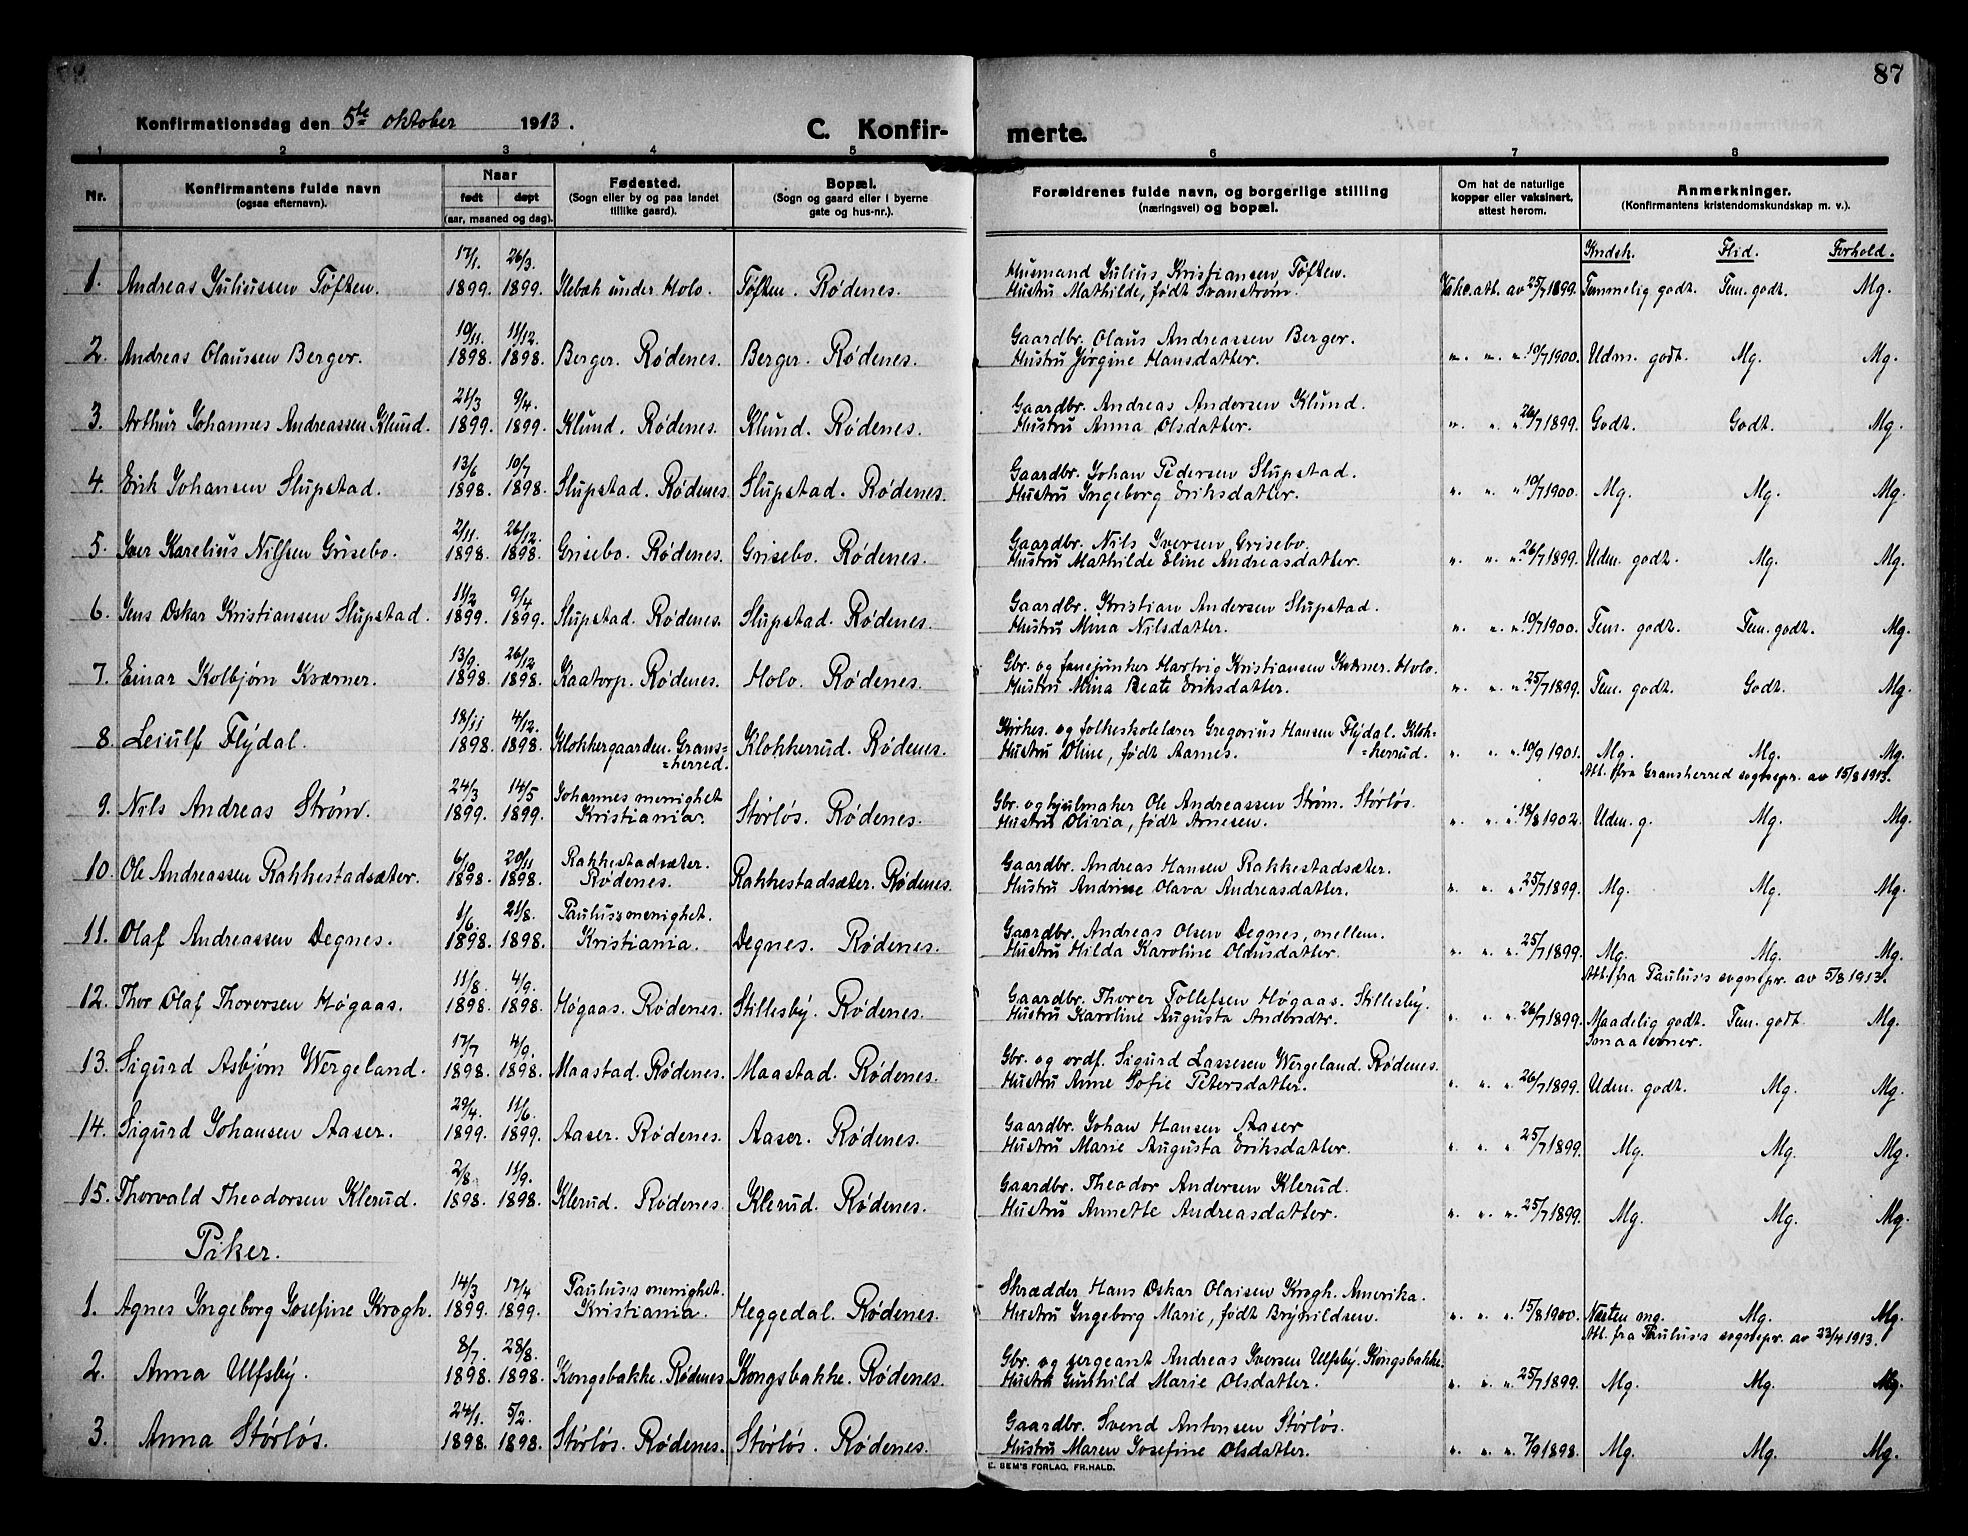 87
Konfirmationsdag den 5te oktober 1913.
C. Konfir- merte.
1 2 3 4 5 6 7 8
Nr.
Konfirmantens fulde navn
(ogsaa efternavn).
Naar
født døpt
(aar, maaned og dag).
Fødested.
(Sogn eller by og paa landet
tillike gaard).
Bopæl.
(Sogn og gaard eller i byerne
gate og hus-nr.).
Forældrenes fulde navn, og borgerlige stilling
(næringsvei) og bopæl.
Om hat de naturlige
kopper eller vaksinert,
attest herom.
Anmerkninger.
(Konfirmantens kristendomskundskap m. v.).
Kndsk. Flid. Forhold.
17/1. 26/3. Husmand Julius Kristiansen Tøften.
1. Andreas Juliussen Tøften. 1899. 1899. Slebæk under Holo. Tøften. Rødenes. Hustru Mathilde, født Svanstrøm. Vakc. att. av 25/7 1899. Temmelig godt. Tem. godt. Mg.
10/11. 11/12. Gaardbr. Olaus Andreassen Berger.
2. Andreas Olaussen Berger. 1898. 1898. Berger. Rødenes. Berger. Rødenes. Hustru Jørgine Hansdatter. " " " 10/7 1900. Udm. godt. Mg. Mg.
21/3 9/4. Gaardbr. Andreas Andersen Klund.
3. Arthur Johannes Andreassen Klund. 1899. 1899. Klund. Rødenes. Klund. Rødenes. Hustru Anna Olsdatter. " " " 26/7 1899. Godt. Godt. Mg.
13/6 10/7 Gaardbr. Johan Pedersen Slupstad.
4. Erik Johansen Slupstad. 1898. 1898. Slupstad. Rødenes. Slupstad. Rødenes. Hustru Ingeborg Eriksdatter. " " " 10/7 1900. Mg. Mg. Mg.
2/11. 26/12. Gaardbr. Nils Iversen Grisebo.
5. Iver Karelius Nilssen Grisebo. 1898. 1898. Grisebo. Rødenes. Grisebo. Rødenes. Hustru Mathilde Eline Andreasdatter. " " " 26/7 1899. Udm. godt. Mg. Mg.
11/2 9/4 Gaardbr. Kristian Andersen Slupstad.
6. Jens Oskar Kristiansen Slupstad. 1899. 1899. Slupstad. Rødenes. Slupstad. Rødenes. Hustru Mina Nilsdatter. " " " 10/7 1900. Tem. godt. Tem. godt. Mg.
13/9. 26/12 Gbr. og fanejunker Hartvig Kristiansen Kværner. Holo.
7. Einar Kolbjørn Kværner. 1898. 1898. Kaatorp. Rødenes. Holo. Rødenes. Hustru Mina Beate Eriksdatter. " " " 25/7 1899. Tem. godt. Godt. Mg.
18/11 4/12. Kirkes. og folkeskolelærer Gregorius Hansen Flydal. Klok-
8. Leiulf Flydal. 1898. 1898. Klokkergaarden. Grans= Klokkerud. Rødenes. Hustru Oline, født Aarnes. =kerrud. " " " 10/9 1901. Mg. Mg. Mg.
=herred. Att. fra Gransherred sognepr. av 15/8 1913.
24/3 14/5 Johannes menighet Gbr. og hjulmaker Ole Andreassen Strøm. Størløs.
9. Nils Andreas Strøm. 1899. 1899. Kristiania. Størløs. Rødenes. Hustru Olivia, født Arnesen. " " " 18/8 1902. Udm. g. Mg. Mg.
6/10 20/11 Rakkestadsæter. Gaardbr. Andreas Hansen Rakkestadsæter.
10. Ole Andreassen Rakkestadsæter. 1898. 1898. Rødenes. Rakkestadsæter. Rødenes. Hustru Andrine Olava Andreasdatter. " " " 25/7 1899. Mg. Mg. Mg.
1/6. 21/8. Paulus's menighet. Gaardbr. Andreas Olsen Degnes, mellem.
11. Olaf Andreassen Degnes. 1898. 1898. Kristiania. Degnes. Rødenes. Hustru Hilda Karoline Olausdatter. " " " 25/7 1899. Mg. Mg. Mg.
Att. fra Paulus's sognepr. av 5/8 1913.
11/8. 4/9. Gaardbr. Thorer Tollefsen Høgaas. Stillesby.
12. Thor Olaf Thorersen Høgaas. 1898. 1898. Høgaas. Rødenes. Stillesby. Rødenes. Hustru Karoline Augusta Andersdtr. " " " 26/7 1899. Maadelig godt. Tem. godt. Mg.
Smaa evner.
17/7 4/9. Gbr. og ordf. Sigurd Lassesen Wergeland. Rødenes.
13. Sigurd Asbjørn Wergeland. 1898. 1898. Maastad. Rødenes. Maastad. Rødenes. Hustru Anne Sofie Petersdatter. " " " 26/7 1899. Udm. godt. Mg. Mg.
29/4. 11/6. Gaardbr. Johan Hansen Aaser
14. Sigurd Johansen Aaser. 1899. 1899. Aaser. Rødenes. Aaser. Rødenes. Hustru Marie Augusta Eriksdatter. " " " 25/7 1899. Mg. Mg. Mg.
2/8. 11/9. Gaardbr. Theodor Andersen Klerud.
15. Thorvald Theodorsen Klerud. 1898. 1898. Klerud. Rødenes. Klerud. Rødenes. Hustru Annette Andreasdatter. " " " 25/7 1899. Mg. Mg. Mg.
Piker.
14/3 17/4 Paulus's menighet. Skrædder Hans Oskar Olaisen Krogh. Amerika.
1. Agnes Ingeborg Josefine Krogh. 1899. 1899. Kristiania. Heggedal. Rødenes. Hustru Ingeborg Marie, født Brynildsen. " " " 15/8 1900. Næsten mg. Mg. Mg.
Att. fra Paulus's sognepr. av 23/4 1913.
8/7. 28/8. Gbr. og sergeant Andreas Iversen Ulfsby. Kongsbakke.
2. Anna Ulfsby. 1898. 1898. Kongsbakke. Rødenes. Kongsbakke. Rødenes. Hustru Gunhild Marie Olsdatter. " " " 25/7 1899. Mg. Mg. Mg.
24/1. 5/2. Gaardbr. Svend Antonsen Størløs.
3. Anna Størløs. 1898. 1898. Størløs. Rødenes. Størløs. Rødenes. Hustru Maren Josefine Olsdatter. " " " 7/9 1898. Mg. Mg. Mg.
E. SEM'S FORLAG, FR.HALD.